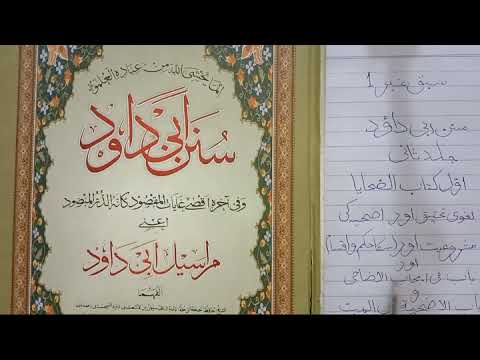 إنما يخشى الله من عباده العلماء
سنن ابی داود
وفي آخره أقصى غايات المقصود كانه الدر المنضود
اعنی
مراسیل ابی داود
سبق نمبر 1
سنن ابی داؤد
جلد ثانی
اول کتاب الضحایا
لغوی تحقیق اور اضحیہ کی
مشروعیت اور اسکا حکم واقسام
اور
باب فی ایجاب الاضاحی
و
باب الاضحیة عن المیت